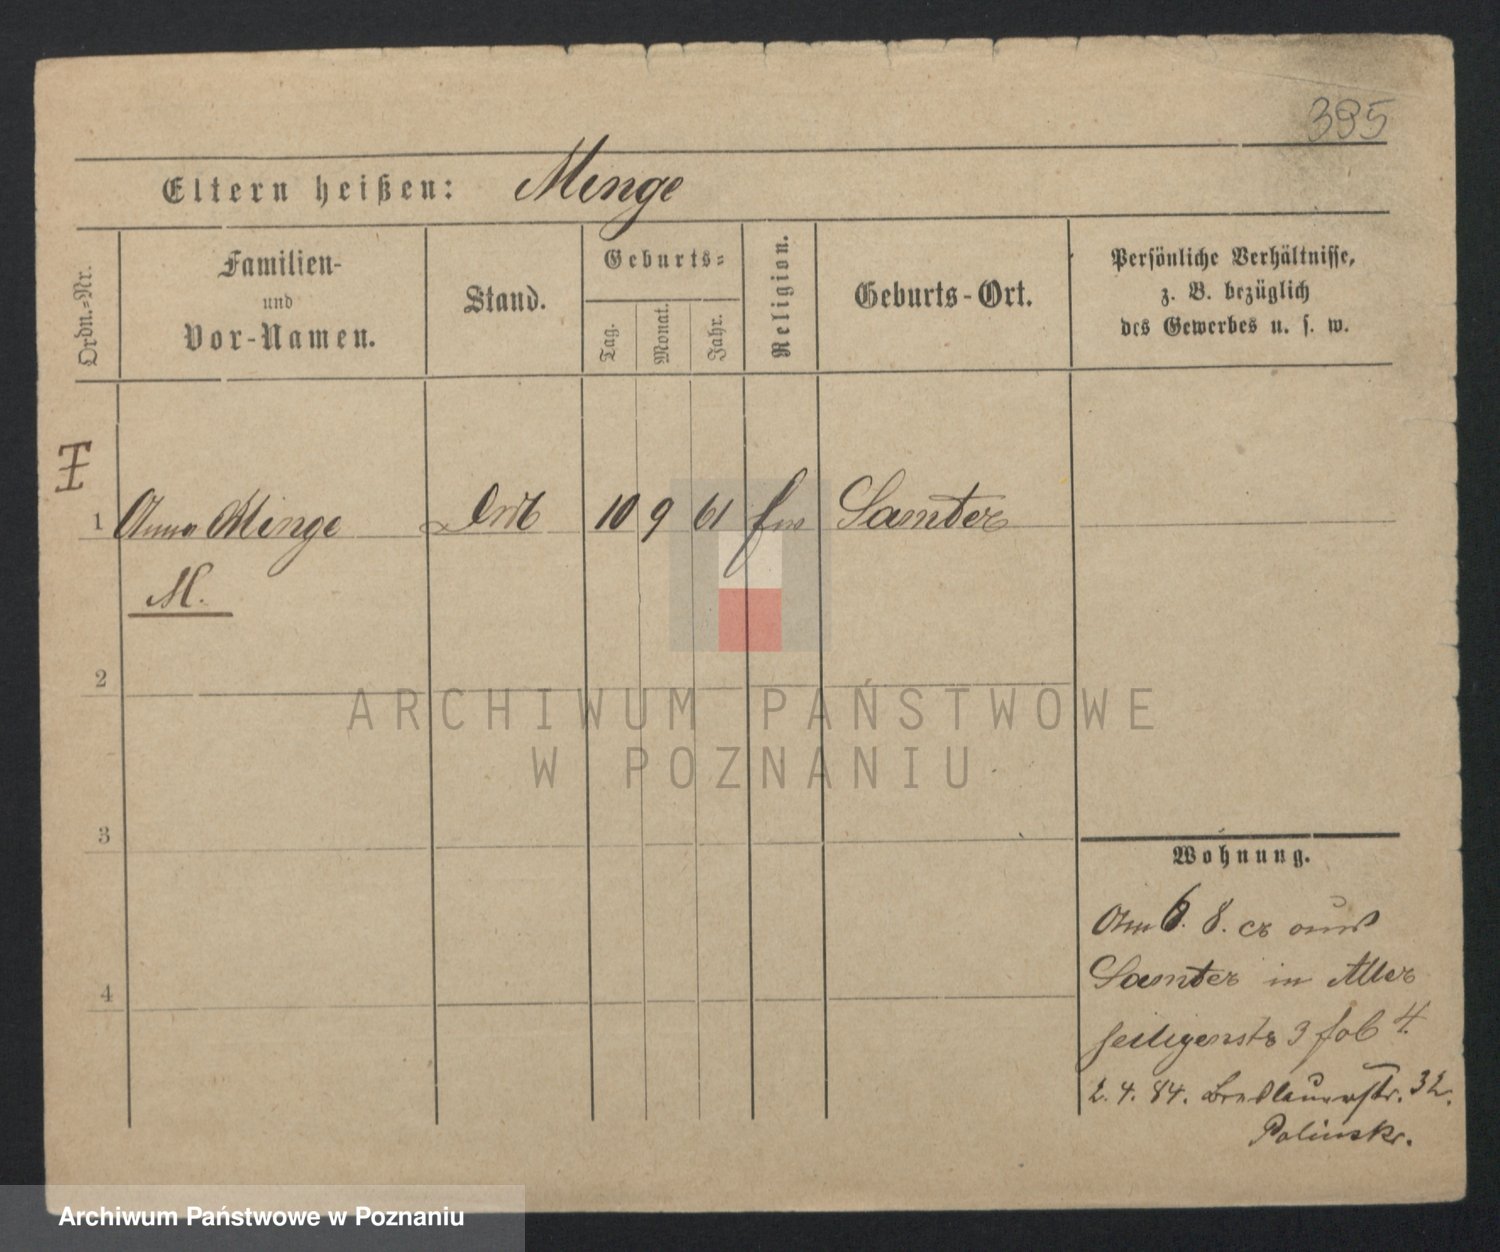 395
Eltern heißen: Minge
Ordn.-Nr.
Familien- und Vor-Namen.
Stand.
Geburts-
Tag.
Monat.
Jahr.
Religion.
Geburts-Ort.
Persönliche Verhältnisse,
z. B. bezüglich
des Gewerbes u. s. w.
1 Anna Minge 10 9 61 Samter
M.
2
ARCHIWUM PAŃSTWOWE
W POZNANIU
3
Wohnung.
4
Am 6. 8. cr aus
Samter in Aller
heiligenstr 3 4.
2. 4. 84. Breslauerstr. 32.
Polinski.
Archiwum Państwowe w Poznaniu